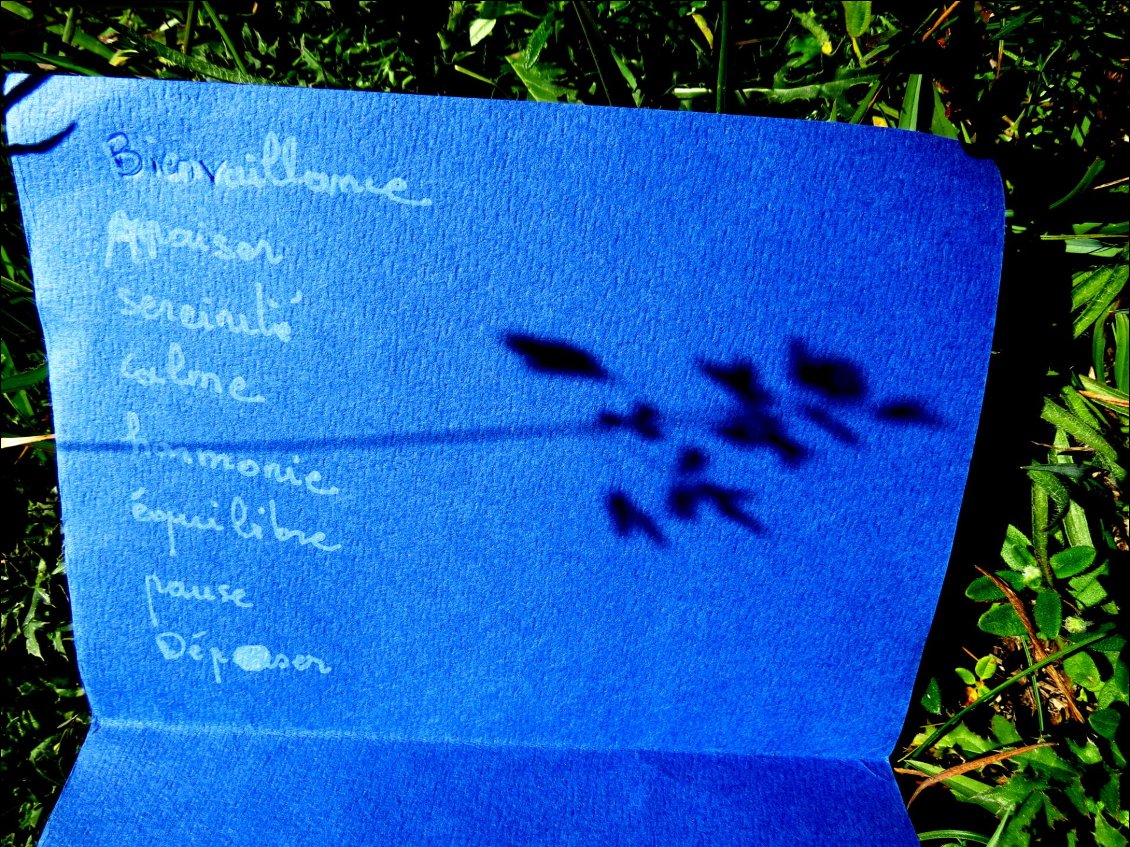 Bienvaillance
Apaiser
sereinité
calme
harmonie
équilibre
pause
Déposer